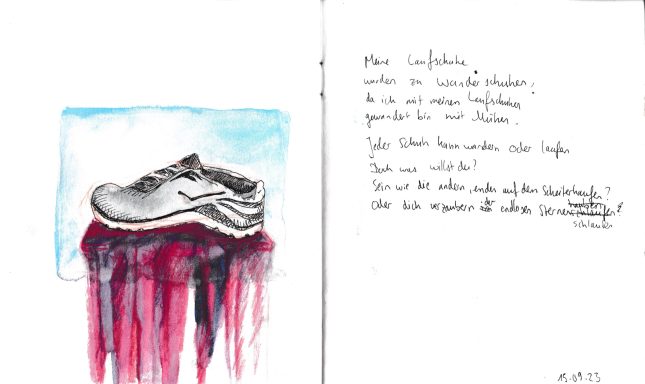 Meine Laufschuhe
wurden zu Wanderschuhen,
da ich mit meinen Laufschuhen
gewandert bin mit Mühen.
Jeder Schuh kann wandern oder laufen
Doch was willst du?
Sein wie die andern, enden auf dem Scheiterhaufen?
Oder dich verzaubern in der endlosen Sternen
schlaufen
15.09.23